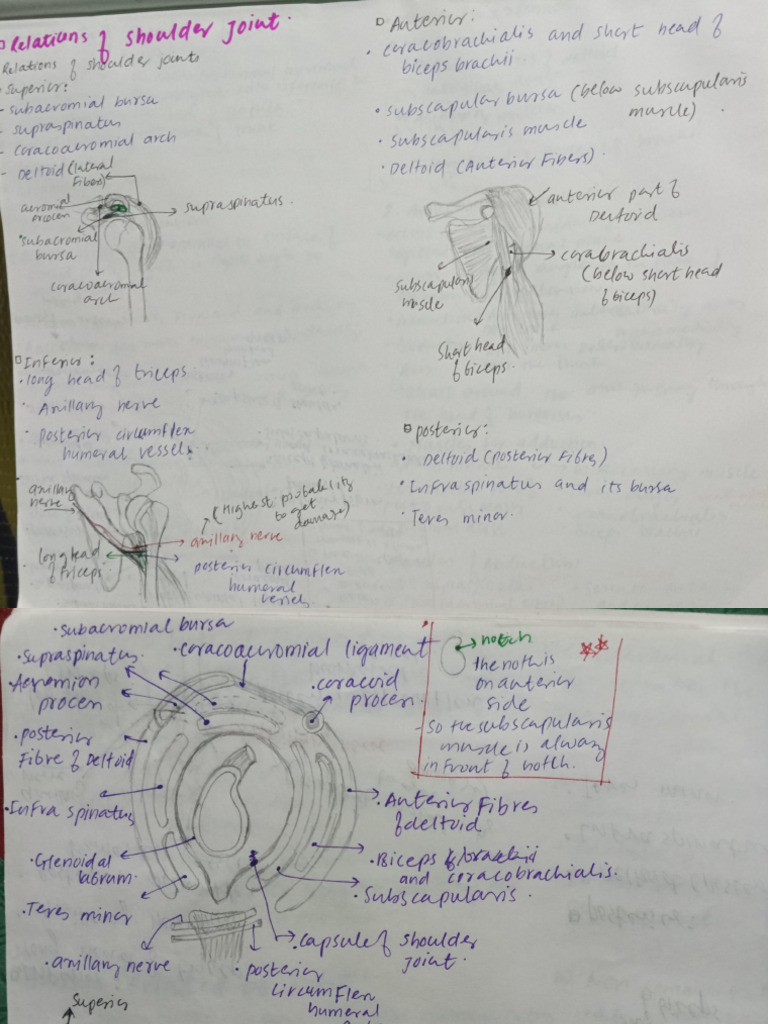 Relations of shoulder joint.
Relations of shoulder joints
Superior:
- subacromial bursa
- supraspinatus
- coracoacromial arch
- Deltoid (lateral
Fibers)
acromial
process
supraspinatus.
subacromial
bursa
coracoacromial
arch
Inferior:
• long head of triceps
• Axillary nerve
• Posterior circumflex
humeral vessels.
axillary
nerve
(Highest probability
to get
damage)
axillary nerve
long head
of triceps.
posterior circumflex
humeral
vessels
Anterior:
• coracobrachialis and short head of
biceps brachii.
• subscapular bursa (below subscapularis
muscle).
• subscapularis muscle
• Deltoid (Anterior Fibers).
anterior part of
Deltoid
corabrachialis
(below short head
of biceps)
subscapularis
muscle
Short head
of biceps.
posterior:
• Deltoid (posterior fibres)
• Infraspinatus and its bursa
• Teres minor.
• subacromial bursa
• Supraspinatus.
• coracoacromial ligament
• Acromion
process
• coracoid
process
• posterior
Fibre of Deltoid
• Infra spinatus
• Glenoidal
labrum.
• Teres minor
• axillary nerve
• posterior
circumflex
humeral
• capsule of shoulder
joint.
• Subscapularis.
• Biceps brachii
and coracobrachialis.
• Anterior Fibres
of deltoid.
notch
the noth is
on anterior
side
- So the subscapularis
muscle is always
in front of notch.
Superior